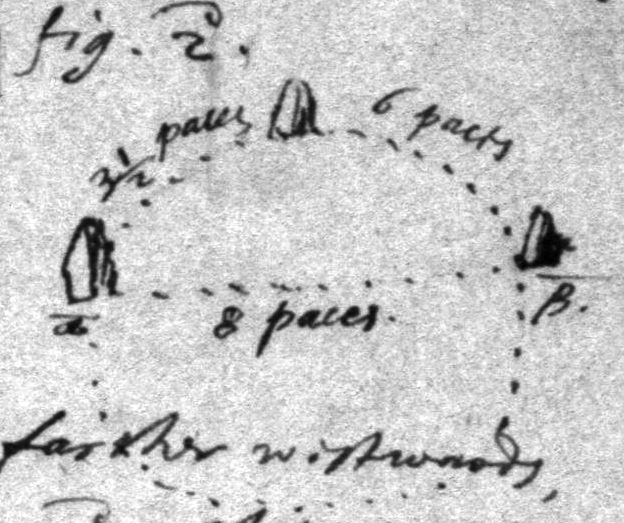 fig. 2.
3 1/2 paces
6 paces
α
β.
8 paces.
farther westwards,